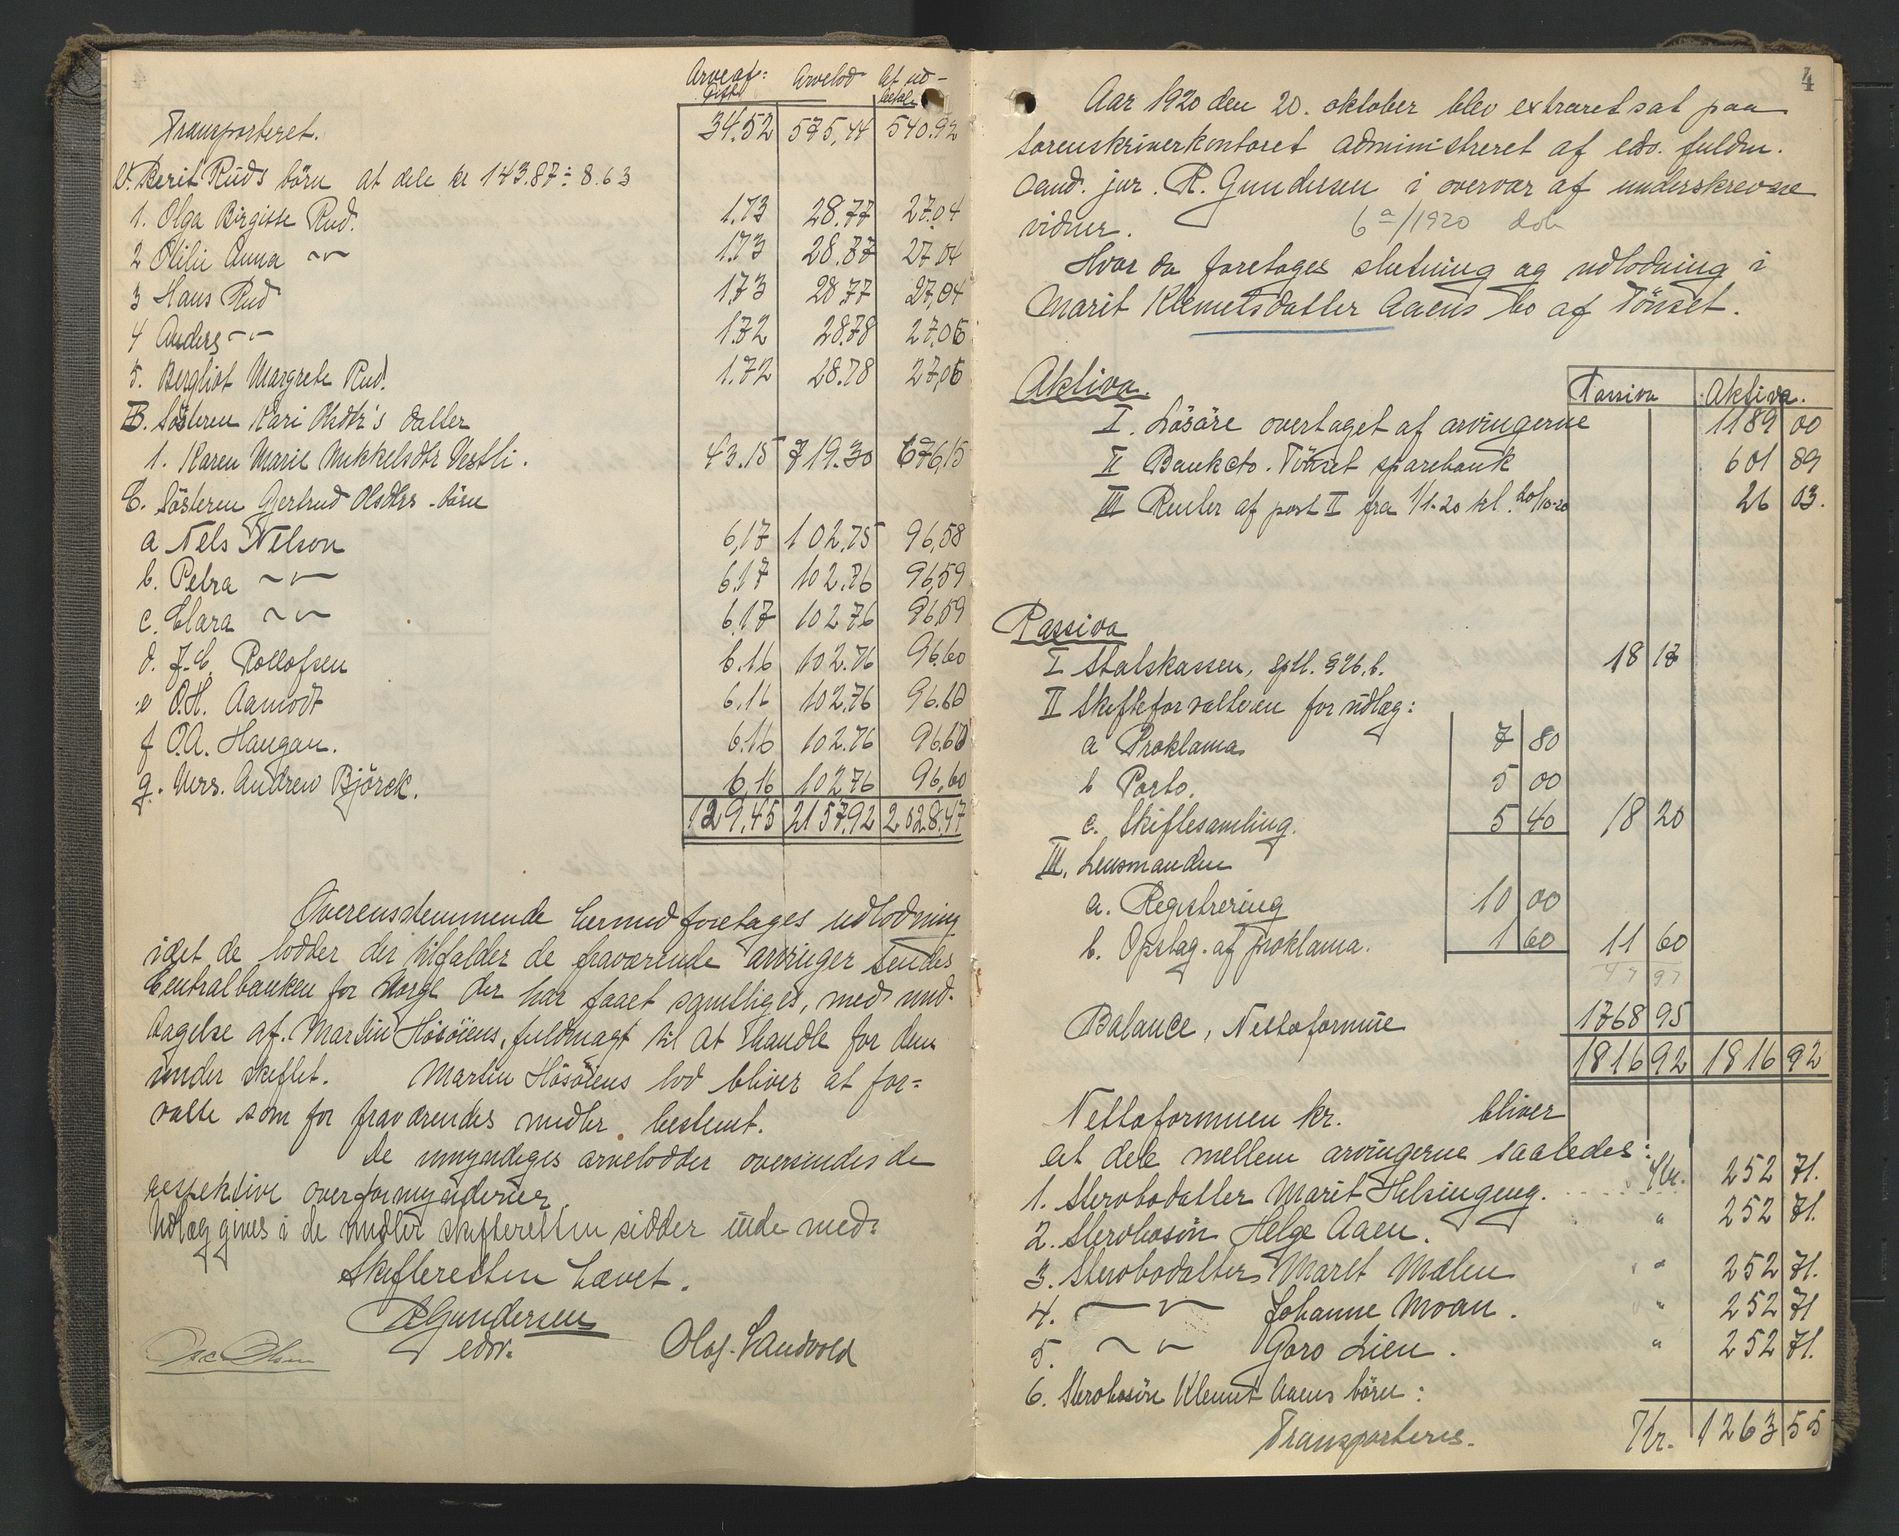 Arveaf: Arvelod At ud-
gift betale
Transporteret. 34.52 575,44 540.92
V. Berit Ruds børn at dele kr 143.87 ÷ 8.63
1. Olga Birgitte Rud. 1.73 28.77 27.04
2 Otilie Anna 〃 1.73 28.77 27.04
3 Hans Rud 1.73 28.77 27,04
4 Anders 〃 1.72 28.78 27.06
5. Bergliot Margrete Rud. 1.72 28.78 27,06
B. Søsteren Kari Olsdtr's datter
1. Karen Marie Mikkelsdtr Vestli. 43.15 719.30 676,15
C. Søsteren Gjertrud Olsdtrs børn
a Nels Nelson 6,17 102.75 96,58
b. Petra 〃 6.17 102.76 96,59
c. Clara 〃 6.17 102.76 96,59
d. J. C. Rollofsen 6.16 102.76 96.60
e O.H. Aamodt 6.16 102.76 96.60
f O.A. Haugan. 6.16 102.76 96.60
g. Mrs. Andrew Björck. 6,16 102.76 96,60
129,45 2157.92 2028.47
Overensstemmende hermed foretages udlodning
idet de lodder der tilfalder de fraværende arvinger sendes
Centralbanken for Norge der har faaet samtliges, med und-
tagelse af Martin Høsøiens, fuldmagt til at handle for dem
under skiftet. Martin Høsøiens lod bliver at for-
valte som for fraværendes midler bestemt.
De umyndiges arvelodder oversendes de
respektive overformynderier
Udlæg gives i de midler skifteretten sidder inde med.
Skifteretten hævet.
RGundersen
edsv.
Olaf Sandvold
4
Aar 1920 den 20. oktober blev extraret sat paa
sorenskriverkontoret administreret af edsv. fuldm.
cand. jur. R. Gundersen i overvær af underskrevne
vidner. 6a/1920
Hvor da foretages slutning og udlodning i
Marit Klemetsdatter Aaens bo af Tönset.
Aktiva Passiva Aktiva.
I. Løsøre overtaget af arvingerne 1189 00
II Bankcto. Tönset sparebank 601 89
III Renter af post II fra 1/1-20 til 20/10-20 26 03.
Passiva
I. Statskassen, sptl. § 26.b. 18 18
II Skifteforvalteren for udlæg:
a Proklama 7 80
b Porto. 5 00
c. Skiftesamling. 5 40 18 20
III. Lensmanden
a. Registrering 10 00
b. Opslag. af proklama. 1 60 11 60
47 97
Balance, Nettoformue 1768 95
1816 92 1816 92
Nettoformuen kr. bliver
at dele mellem arvingerne saaledes:
1. Stervbodatter Marit Helsingeng. Kr. 252 71.
2. Stervbosøn Helge Aaen. " 252 71.
3. Stervbodatter Marit Mælen " 252 71.
4. 〃 Johanne Moan. " 252 71
5. 〃 Goro Lien. " 252 71.
6. Stervbosøn Klemet Aaens børn:
Transporteres. Kr. 1263 55